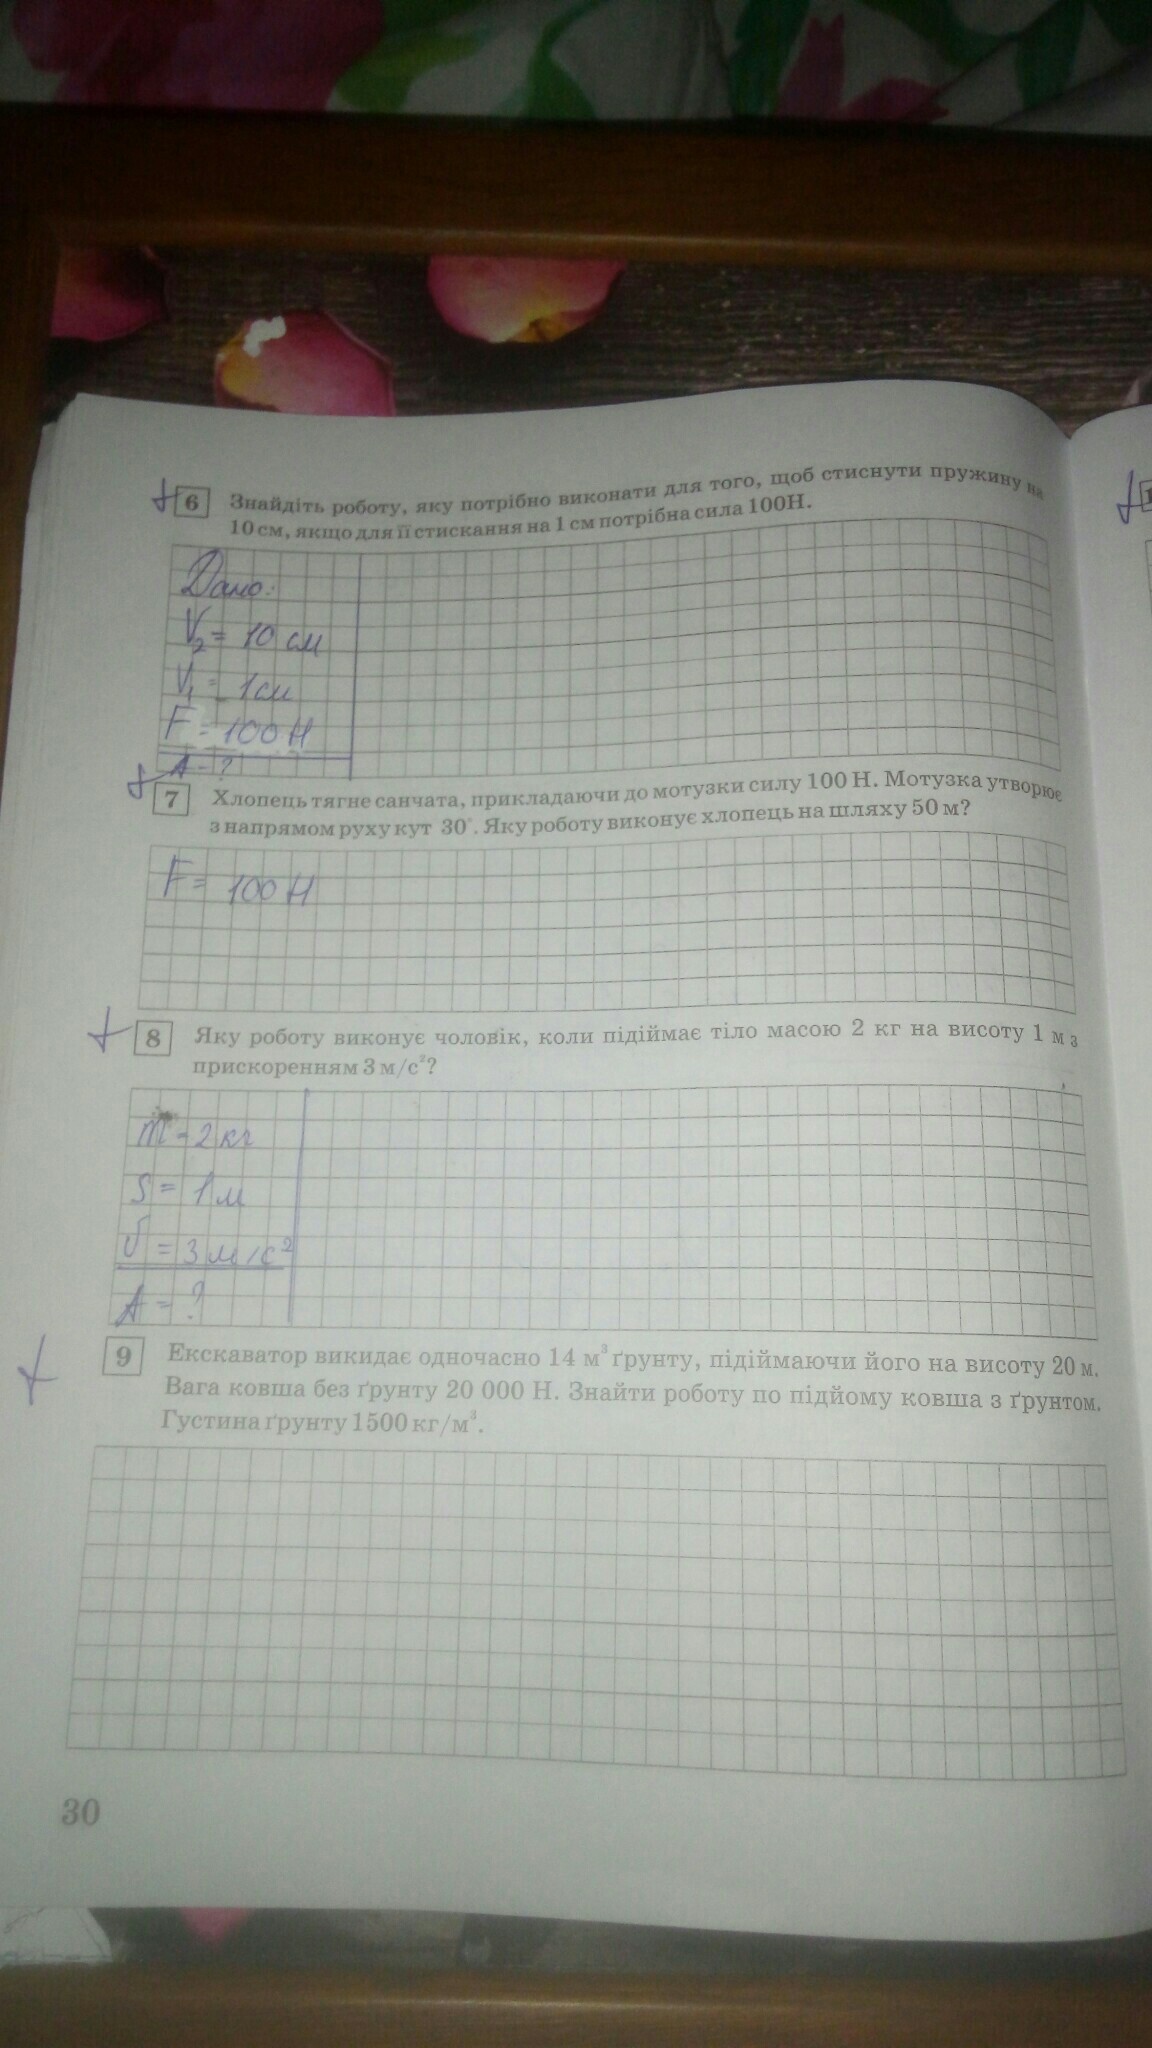 6 Знайдіть роботу, яку потрібно виконати для того, щоб стиснути пружину на
10 см, якщо для її стискання на 1 см потрібна сила 100Н.
Дано:
V₂ = 10 см
V₁ = 1см
F = 100 Н
A - ?
7 Хлопець тягне санчата, прикладаючи до мотузки силу 100 Н. Мотузка утворює
з напрямом руху кут 30°. Яку роботу виконує хлопець на шляху 50 м?
F = 100 Н
8 Яку роботу виконує чоловік, коли підіймає тіло масою 2 кг на висоту 1 м з
прискоренням 3 м/с²?
m = 2 кг
S = 1 м
V = 3 м/с²
A = ?
9 Екскаватор викидає одночасно 14 м³ ґрунту, підіймаючи його на висоту 20 м.
Вага ковша без ґрунту 20 000 Н. Знайти роботу по підйому ковша з ґрунтом.
Густина ґрунту 1500 кг/м³.
30